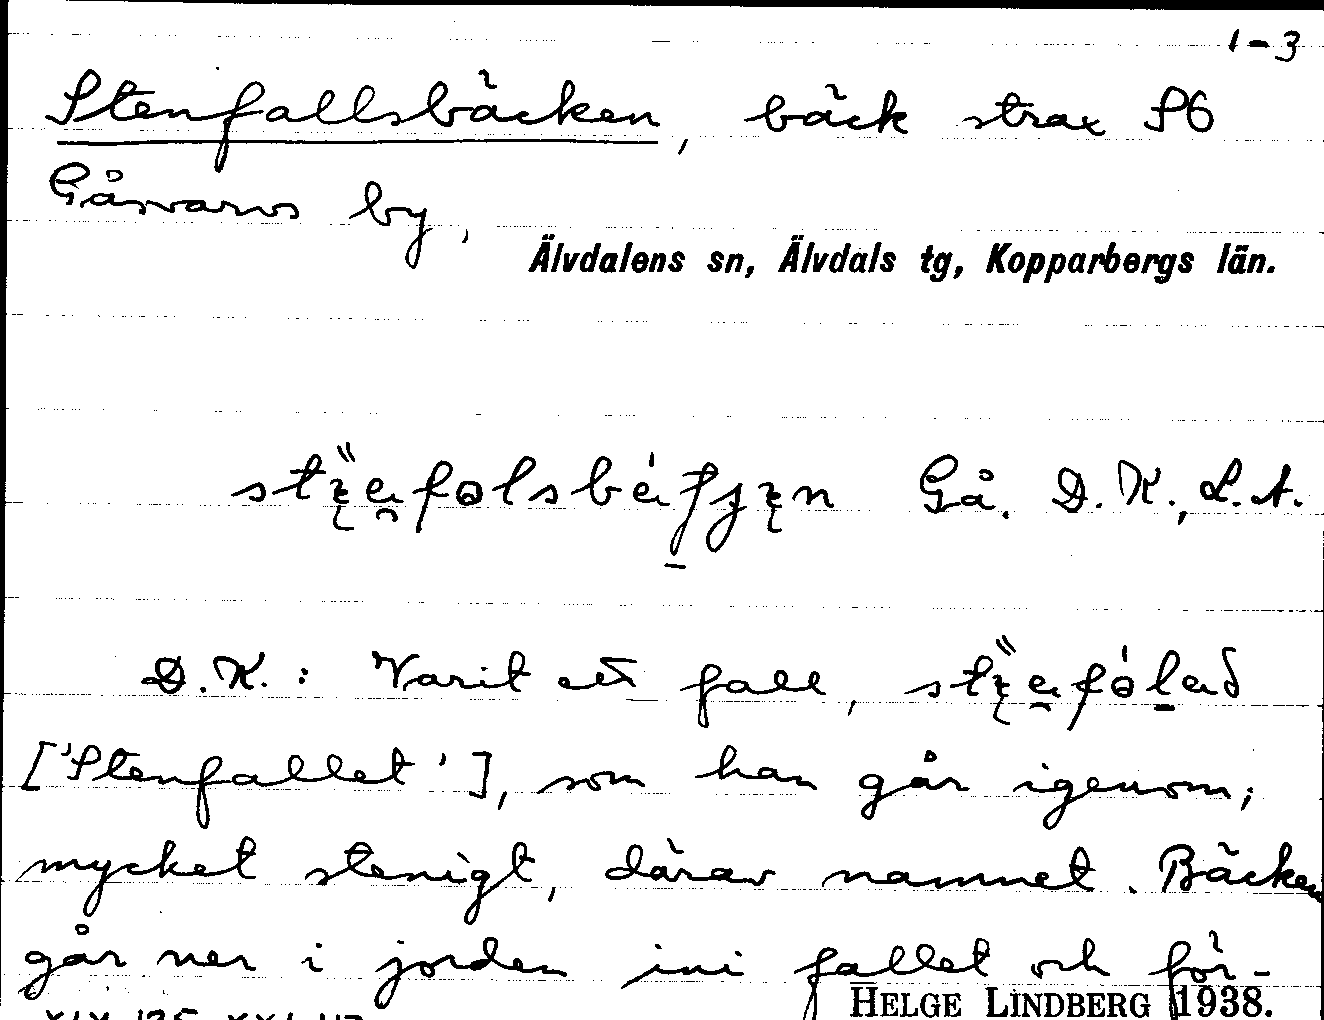 1-3
Stenfallsbäcken, bäck strax SO
Gåsvarvs by,
Älvdalens sn, Älvdals tg, Kopparbergs län.
Gå. D. K., L. A.
D. K. : Varit ett fall,
['Stenfallet'], som han går igenom;
mycket stenigt, därav namnet. Bäcken
går ner i jorden ini fallet och för-
HELGE LINDBERG 1938.